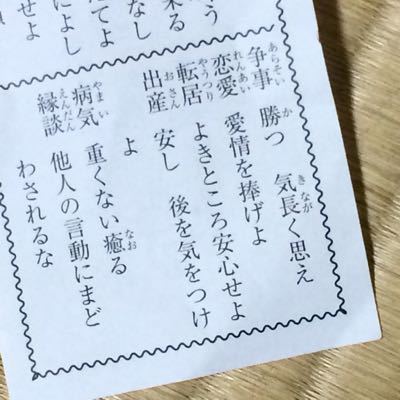 う
来る
なし
たてよ
によし
せよ
争事 勝つ 気長く思え
恋愛 愛情を捧げよ
転居 よきところ安心せよ
出産 安し 後を気をつけ
よ
病気 重くない癒る
縁談 他人の言動にまど
わされるな